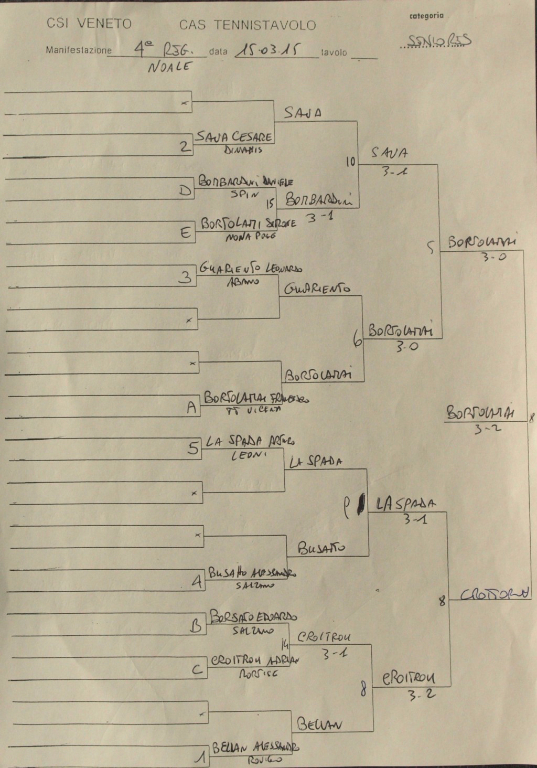 CSI VENETO CAS TENNISTAVOLO categoria
Manifestazione 4ª REG. data 15-03-15 tavolo SENIORES
NOALE
x
SAVA
2 SAVA CESARE
DINAMIS
10 SAVA
3-1
D BOMBARDINI DANIELE
SPIN
15 BOMBARDINI
3-1
E BORTOLATTI
5 BORTOLAMAI
3-0
3 GUARIENTO LEONARDO
ABANO
GUARIENTO
x
6 BORTOLAMAI
3-0
x
BORTOLAMAI
A BORTOLAMAI FRANCESCO
TT VICENZA
BORTOLAMAI 8
3-2
5 LA SPADA ARTURO
LEONI
LA SPADA
x
LA SPADA
3-1
x
BUSATTO
4 BUSATTO ALESSANDRO
SALZANO
8
B BORSATO EDOARDO
SALZANO
14 CROITROU
3-1
C CROITROU ADRIAN
MORTISE
8 CROITROU
3-2
BELLAN
1 BELLAN ALESSANDRO
ROVIGO